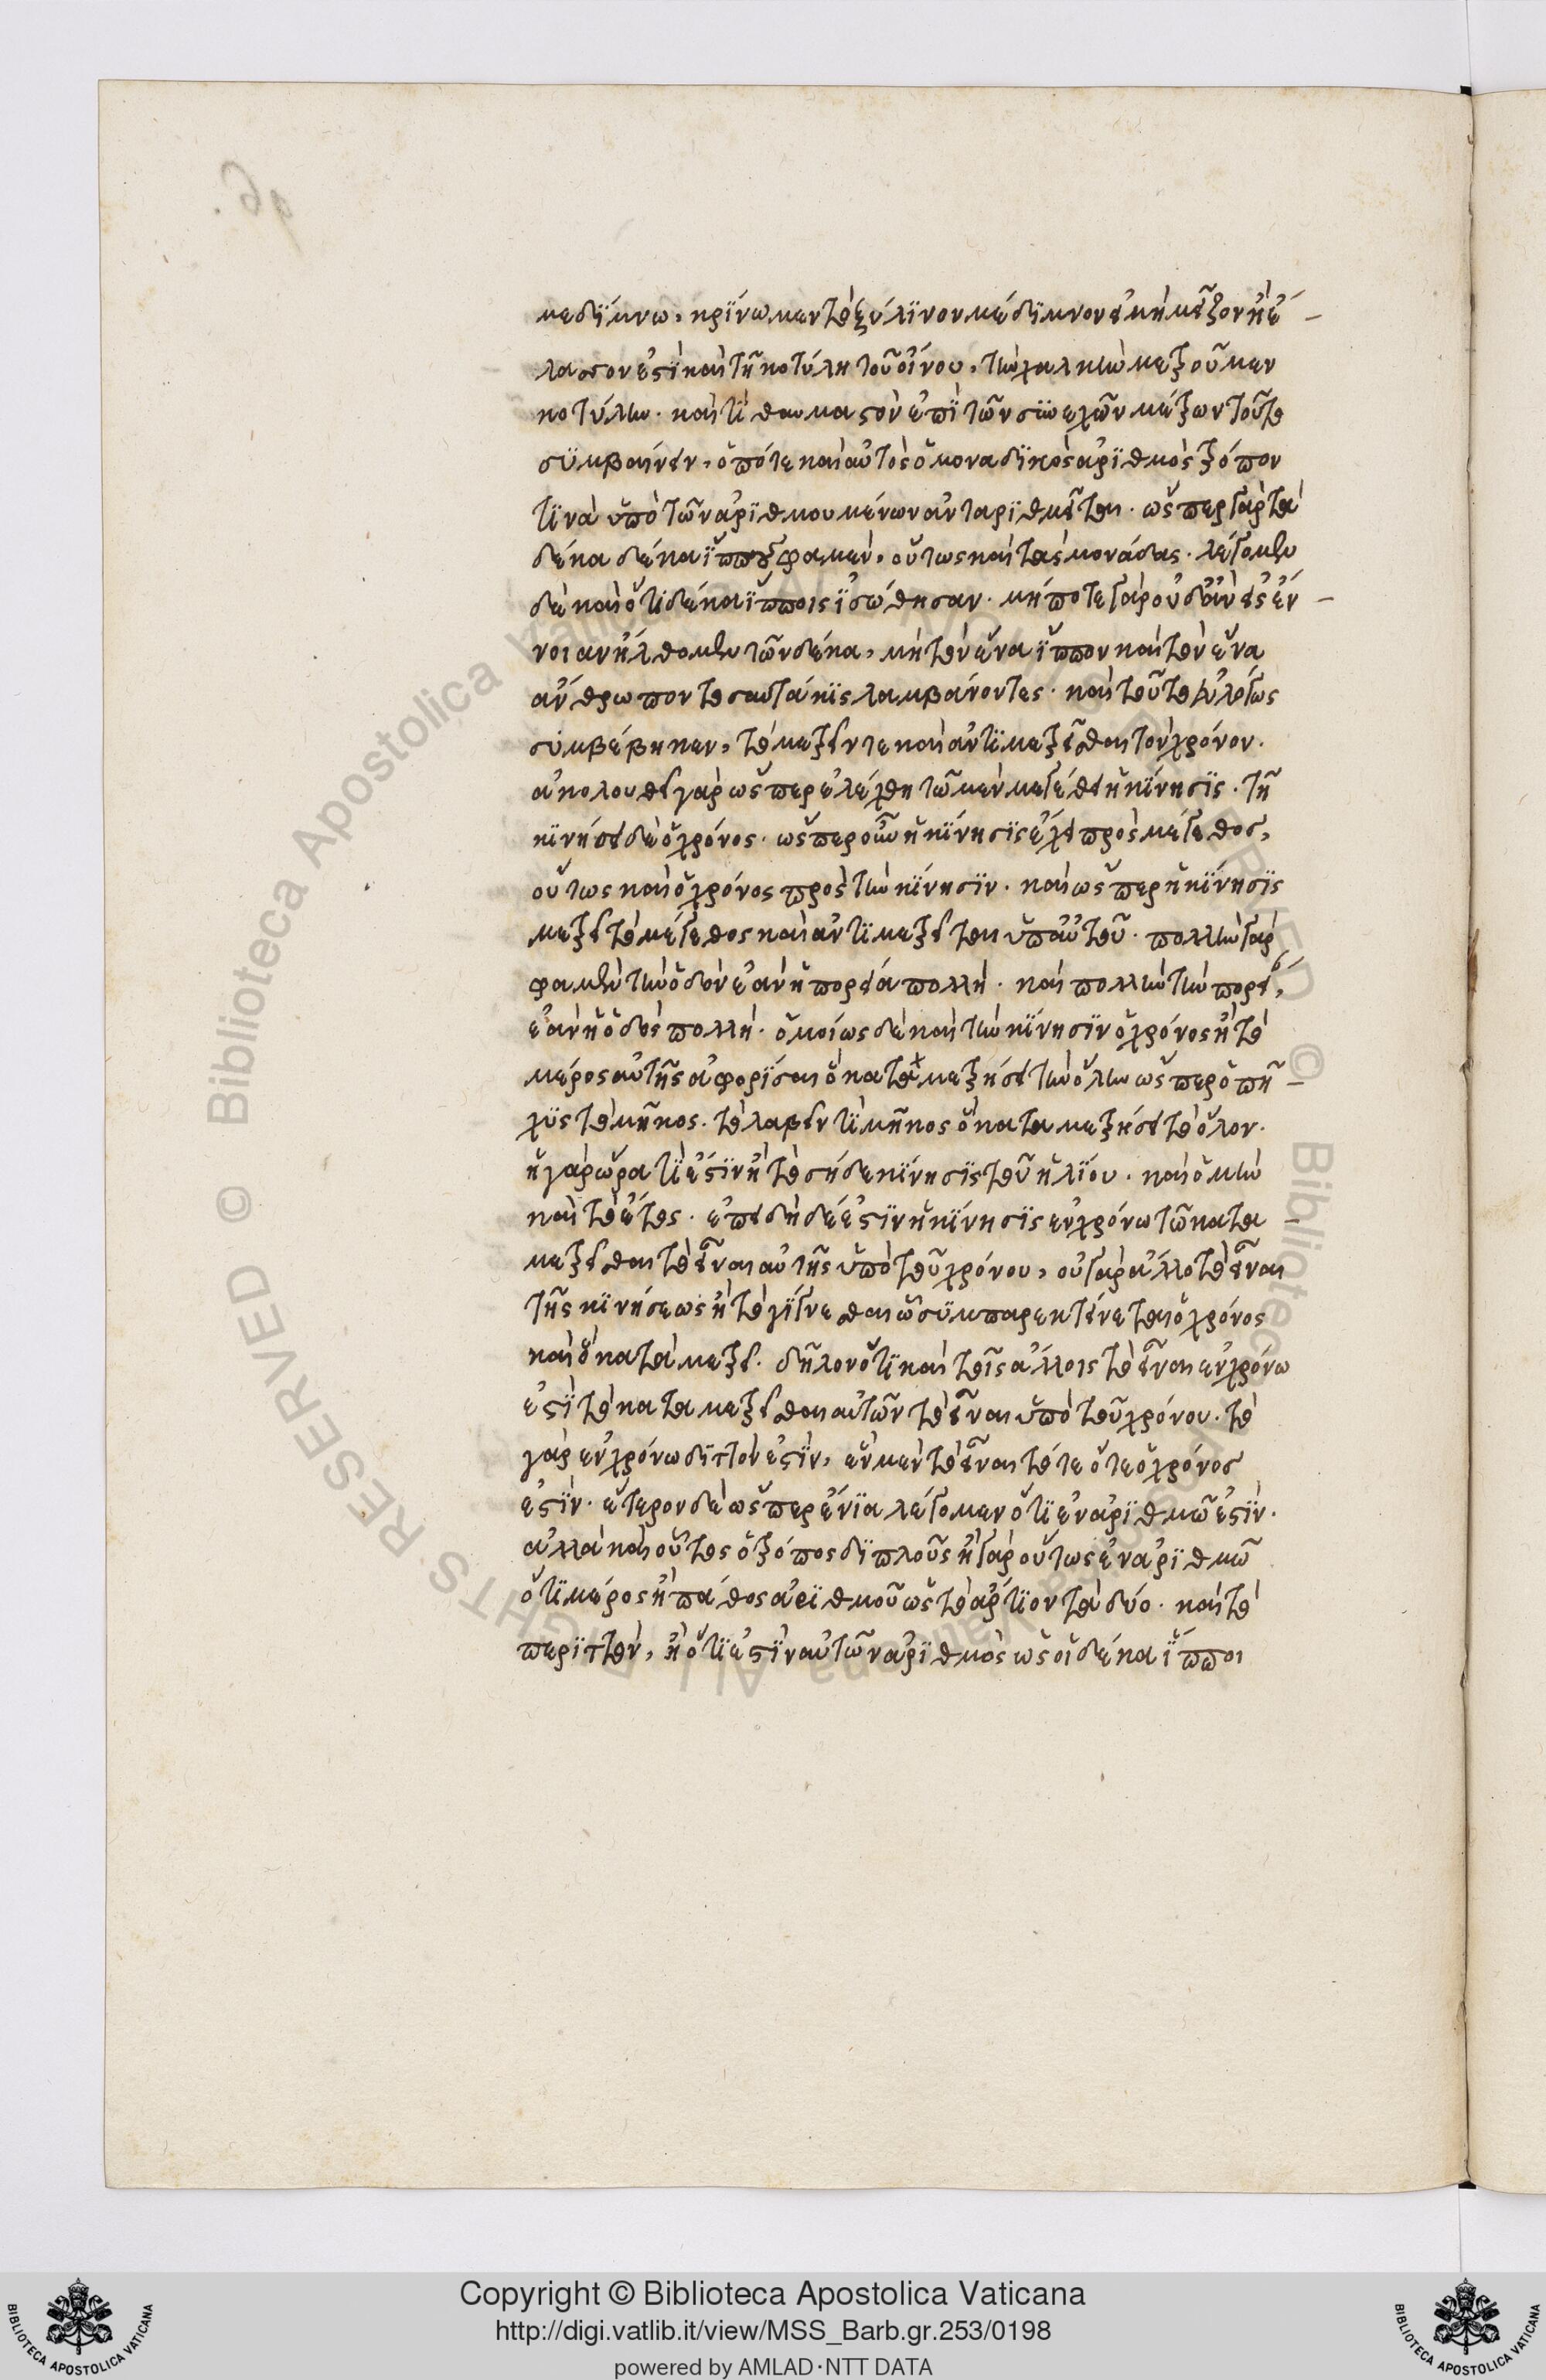 μεδίμνω, κρίνωμεν τὸ ξύλινον μέδιμνον εἰ μὴ μεῖζον ἢ ἔ-
λασσον ἐστὶ καὶ τῆ κοτύλη τοῦ οἴνου, τὴν χαλκὴν μετροῦμεν
κοτύλην. καὶ τί θαυμαστὸν ἐπὶ τῶν συνεχῶν μέτρων τοῦτο
συμβαίνειν, ὁπότε καὶ αὐτὸς ὁ μοναδικὸς ἀριθμὸς τρόπον
τινὰ ὑπὸ τῶν ἀριθμουμένων ἀνταριθμεῖται. ὥσπερ γὰρ τὰ
δέκα δέκα ἵππους φαμὲν, οὕτως καὶ τὰς μονάδας. λέγομεν
δὲ καὶ ὅτι δέκα ἵπποις ἰσώθησαν. μήποτε γὰρ οὐδ' ἂν εἰς ἔν-
νοιαν ἤλθομεν τῶν δέκα, μὴ τὸν ἕνα ἵππον καὶ τὸν ἕνα
ἄνθρωπον τοσαυτάκις λαμβάνοντες. καὶ τοῦτο εὐλόγως
συμβέβηκεν, τὸ μετρεῖν τε καὶ ἀντιμετρεῖσθαι τὸν χρόνον.
ἀκολουθεῖ γὰρ ὥσπερ ἐλέχθη τῶ μὲν μεγέθει ἡ κίνησις. τῆ
κινήσει δὲ ὁ χρόνος. ὥσπερ οὖν ἡ κίνησις ἔχει πρὸς μέγεθος,
οὕτως καὶ ὁ χρόνος πρὸς τὴν κίνησιν. καὶ ὥσπερ ἡ κίνησις
μετρεῖ τὸ μέγεθος καὶ ἀντιμετρεῖται ὑπ' αὐτοῦ. πολλὴν γὰρ
φαμὲν τὴν ὁδὸν ἐὰν ἡ πορεία πολλή. καὶ πολλὴν τὴν πορεί,
ἐὰν ἡ ὁδὸς πολλή. ὁμοίως δὲ καὶ τὴν κίνησιν ὁ χρόνος ἢ τὸ
μέρος αὐτῆς ἀφορίσαι ὃ καταμετρήσει τὴν ὅλην ὥσπερ ὁ πῆ-
χυς τὸ μῆκος. τὸ λαβεῖν τι μῆκος ὃ καταμετρήσει τὸ ὅλον.
ἡ γὰρ ὥρα τί ἐστιν ἢ τοσήδε κίνησις τοῦ ἡλίου. καὶ ὁ μὴν
καὶ τὸ ἔτος. ἐπειδὴ δέ ἐστιν ἡ κίνησις ἐν χρόνω τῶ κατα-
μετρεῖσθαι τὸ εἶναι αὐτῆς ὑπὸ τοῦ χρόνου, οὐ γὰρ ἄλλο τὸ εἶναι
τῆς κινήσεως ἢ τὸ γίγνεσθαι ᾧ συμπαρεκτείνεται ὁ χρόνος
καὶ ὃ καταμετρεῖ. δῆλον ὅτι καὶ τοῖς ἄλλοις τὸ εἶναι ἐν χρόνω
ἐστὶ τὸ καταμετρεῖσθαι αὐτῶν τὸ εἶναι ὑπὸ τοῦ χρόνου. τὸ
γὰρ ἐν χρόνω διττὸν ἐστὶν, ἓν μὲν τὸ εἶναι τότε ὅτε ὁ χρόνος
ἐστὶν. ἕτερον δὲ ὥσπερ ἔνια λέγομεν ὅτι ἐν ἀριθμῶ ἐστὶν.
ἀλλὰ καὶ οὗτος ὁ τρόπος διπλοῦς ἢ γὰρ οὕτως ἐν ἀριθμῶ
ὅτι μέρος ἢ πάθος ἀριθμοῦ ὡς τὸ ἄρτιον τὰ δύο. καὶ τὸ
περιττὸν, ἢ ὅτι ἐστὶν αὐτῶν ἀριθμὸς ὡς οἱ δέκα ἵπποι
Copyright © Biblioteca Apostolica Vaticana
http://digi.vatlib.it/view/MSS_Barb.gr.253/0198
powered by AMLAD·NTT DATA